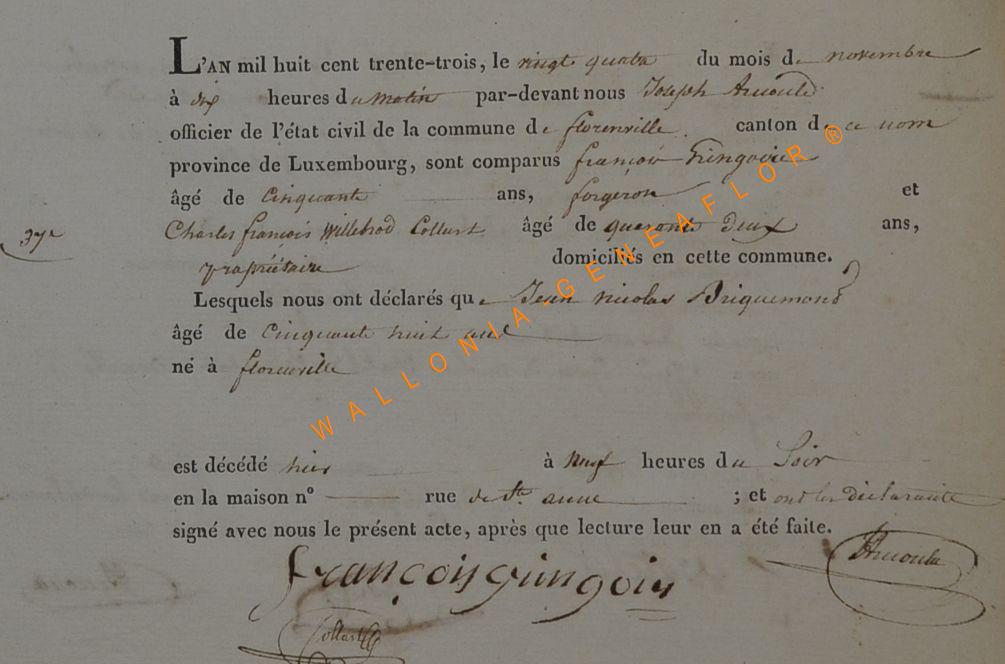 L'AN mil huit cent trente-trois, le vingt quatre du mois de novembre
à dix heures du Matin par-devant nous Joseph Arnould
officier de l'état civil de la commune de florenville canton de ce nom
province de Luxembourg, sont comparus françois Gringoire
âgé de Cinquante ans, forgeron et
37e Charles françois Willebrod Collart âgé de quarante Deux ans,
propriétaire domiciliés en cette commune.
Lesquels nous ont déclarés que Jean nicolas Briquemond
âgé de Cinquante huit ans
né à florenville
est décédé hier à Neuf heures du Soir
en la maison nº rue de Ste anne ; et ont les Déclarants
signé avec nous le présent acte, après que lecture leur en a été faite.
françois gringoir
Collart
WALLONIA-GENEAFLOR ®